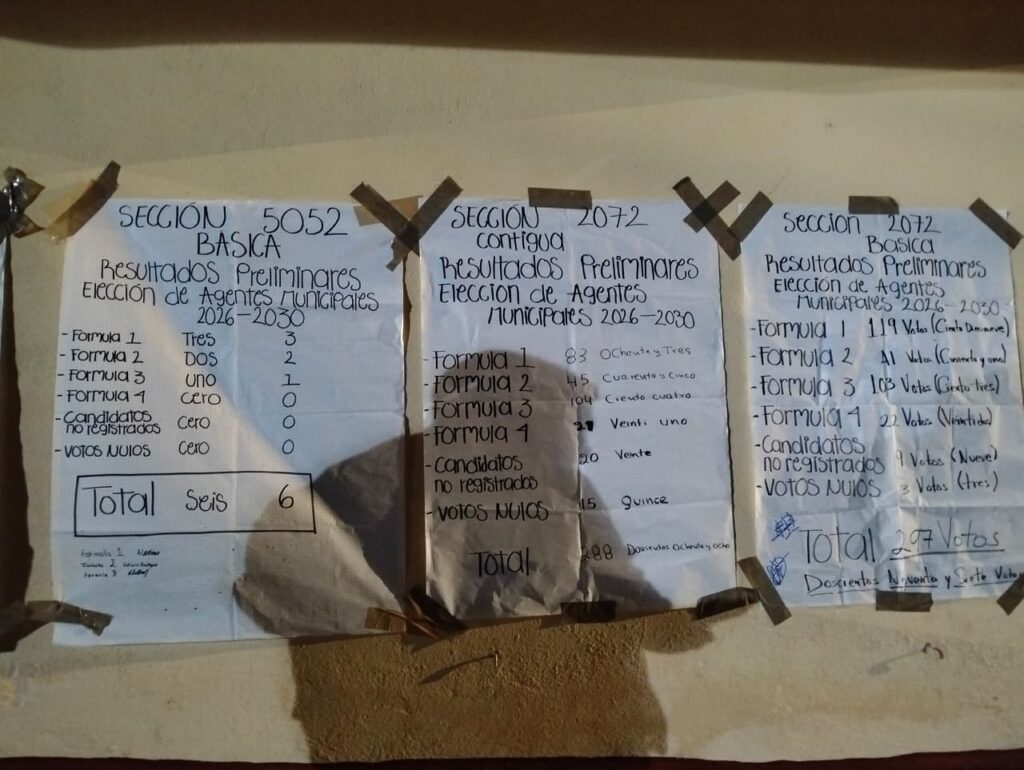 SECCIÓN 5052
BASICA
Resultados Preliminares
Elección de Agentes Municipales
2026-2030
- Formula 1 Tres 3
- Formula 2 DOS 2
- Formula 3 uno 1
- Formula 4 cero 0
- Candidatos
no registrados Cero 0
- VOTOS NULOS cero 0
Total Seis 6
Formula 1
Formula 2
Formula 3
SECCIÓN 2072
contigua
Resultados Preliminares
Eleccion de Agentes
Municipales 2026-2030
- Formula 1 83 Ochenta y Tres
- Formula 2 45 Cuarenta y Cinco
- Formula 3 104 Ciento cuatro
- Formula 4 21 Veinti uno
- Candidatos
no registrados 20 Veinte
- VOTOS NULOS 15 quince
Total 288 Doscientos Ochenta y Ocho
Sección 2072
Basica
Resultados Preliminares
Elección de Agentes
Municipales 2026-2030
- Formula 1 119 Votos (Ciento Diecinueve)
- Formula 2 41 Votos
- Formula 3 103 Votos (Ciento tres)
- Formula 4 22 Votos (Veintidos)
- Candidatos
no registrados 9 Votos (Nueve)
- VOTOS NULOS 3 Votos (tres)
Total 297 Votos
Doscientos Noventa y Siete Votos